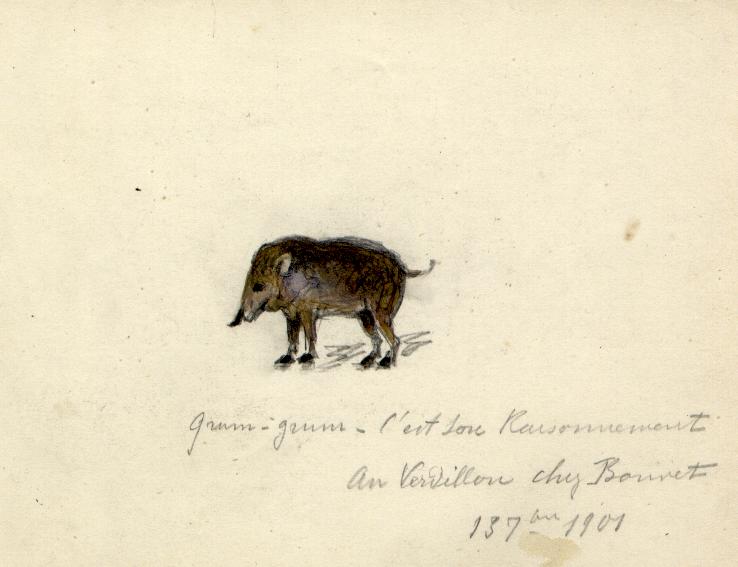 grum-grum - C'est son Raisonnement
Au Verdillon chez Bonnet
13 7bre 1901